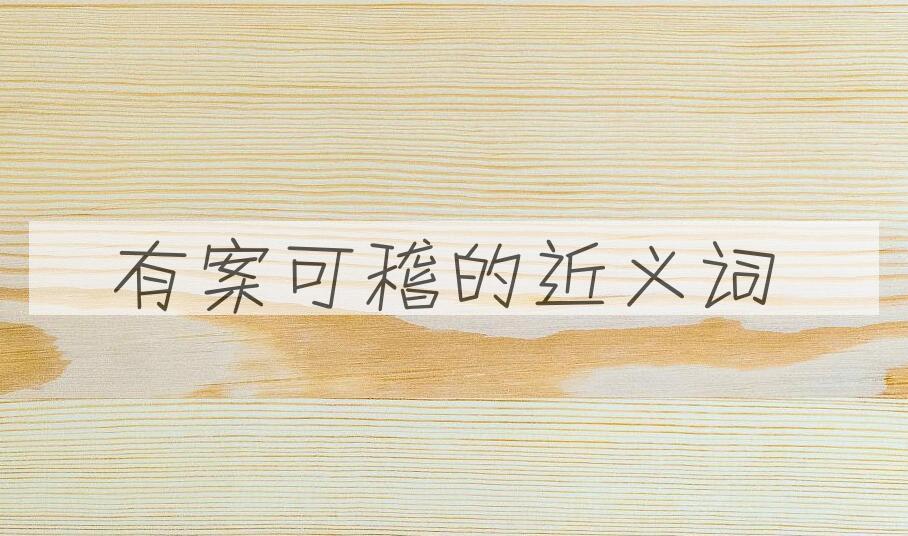 有案可稽的近义词